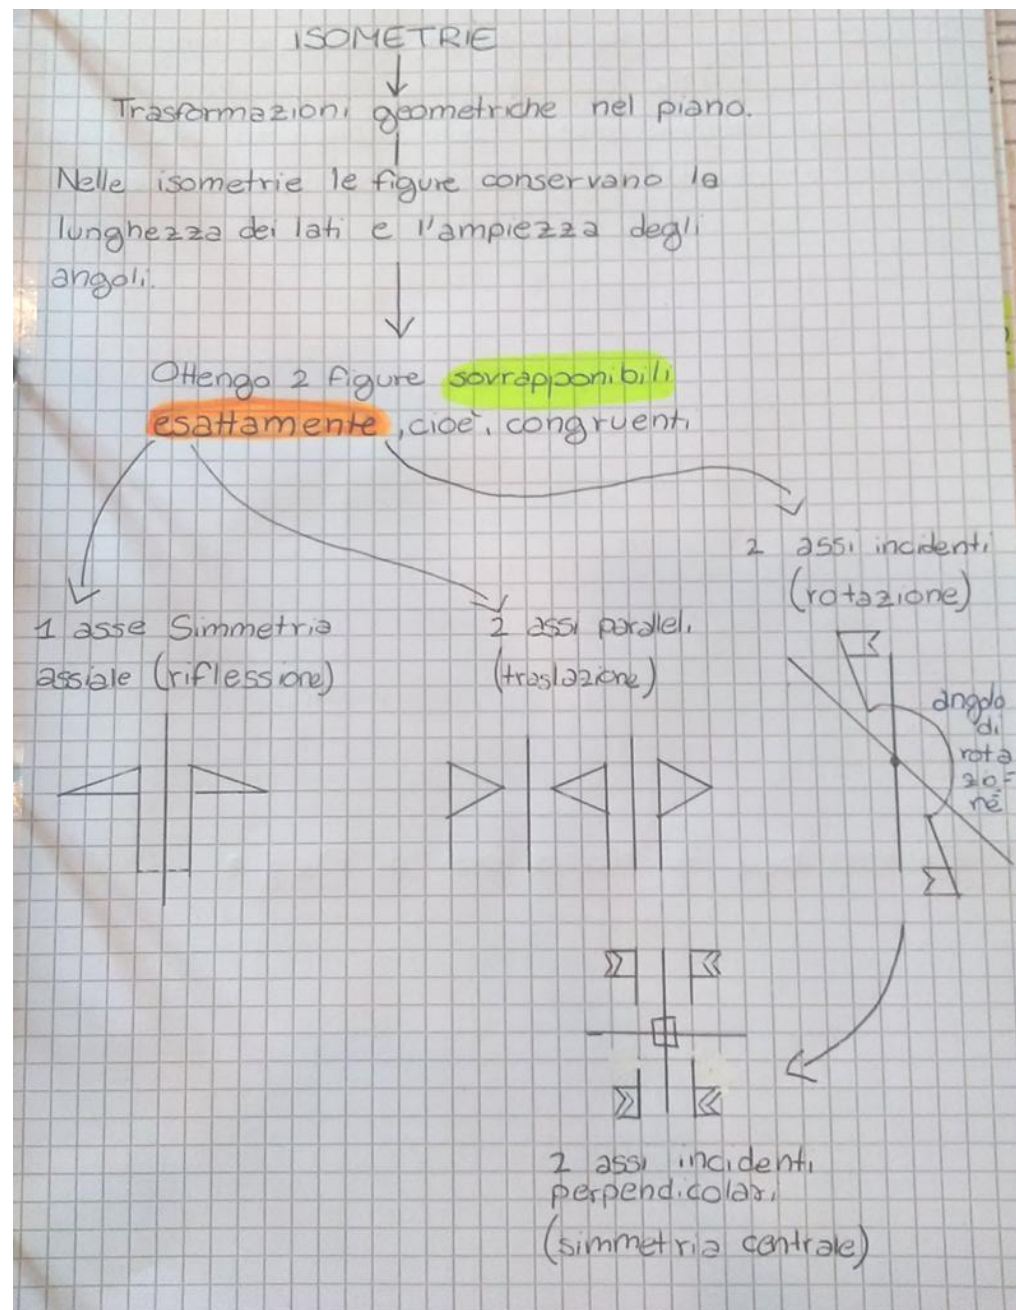 ISOMETRIE
Trasformazioni geometriche nel piano.
Nelle isometrie le figure conservano la
lunghezza dei lati e l'ampiezza degli
angoli.
Ottengo 2 figure sovrapponibili
esattamente, cioè, congruenti
2 assi incidenti
(rotazione)
1 asse Simmetria
assiale (riflessione)
2 assi paralleli
(traslazione)
angolo
di
rota
zio-
ne
2 assi incidenti
perpendicolari
(simmetria centrale)